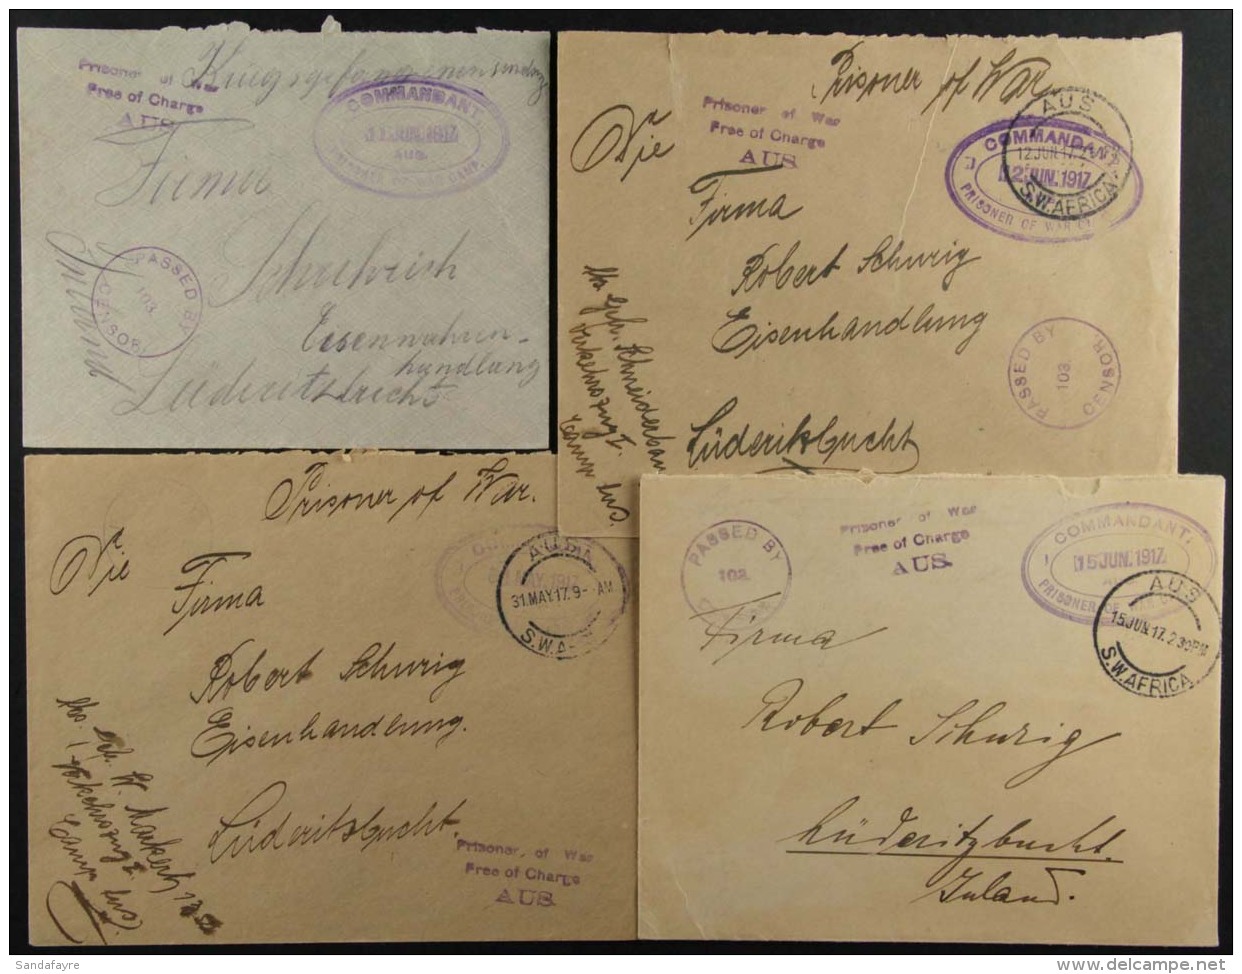 Prisoner of War
Free of Charge
AUS.
Kriegsgefangenensendung
COMMANDANT,
JUN.1917
AUS.
CAMP.
Firma
Inland
PASSED BY
103.
CENSOR
Eisenwahren-
handlung
Prisoner of War
Free of Charge
AUS.
Prisoner of War
Die
AUS
12 JUN.17.
S.W.AFRICA.
COMMANDANT,
12 JUN.1917.
PRISONER OF WAR
Firma
Robert Schurig
Eisenhandlung
Lüderitzbucht
PASSED BY
103.
CENSOR.
Abs. Gefr. Schneider
Verkehrszug I.
Camp Aus.
Prisoner of War.
Die
AUS
31.MAY.17.9- AM
S.W.A
MAY.1917
Firma
Robert Schurig
Eisenhandlung.
Lüderitzbucht.
Abs. W. Markert
Verkehrszug I.
Camp Aus.
Prisoner of War
Free of Charge
AUS.
PASSED BY
103.
Prisoner of War
Free of Charge
AUS.
COMMANDANT,
15 JUN.1917.
PRISONER OF WAR
AUS
15 JUN 17. 2 30PM
S.W.AFRICA.
Firma
Robert Schurig
Lüderitzbucht.
Inland.
Sandafayre
delcampe.net